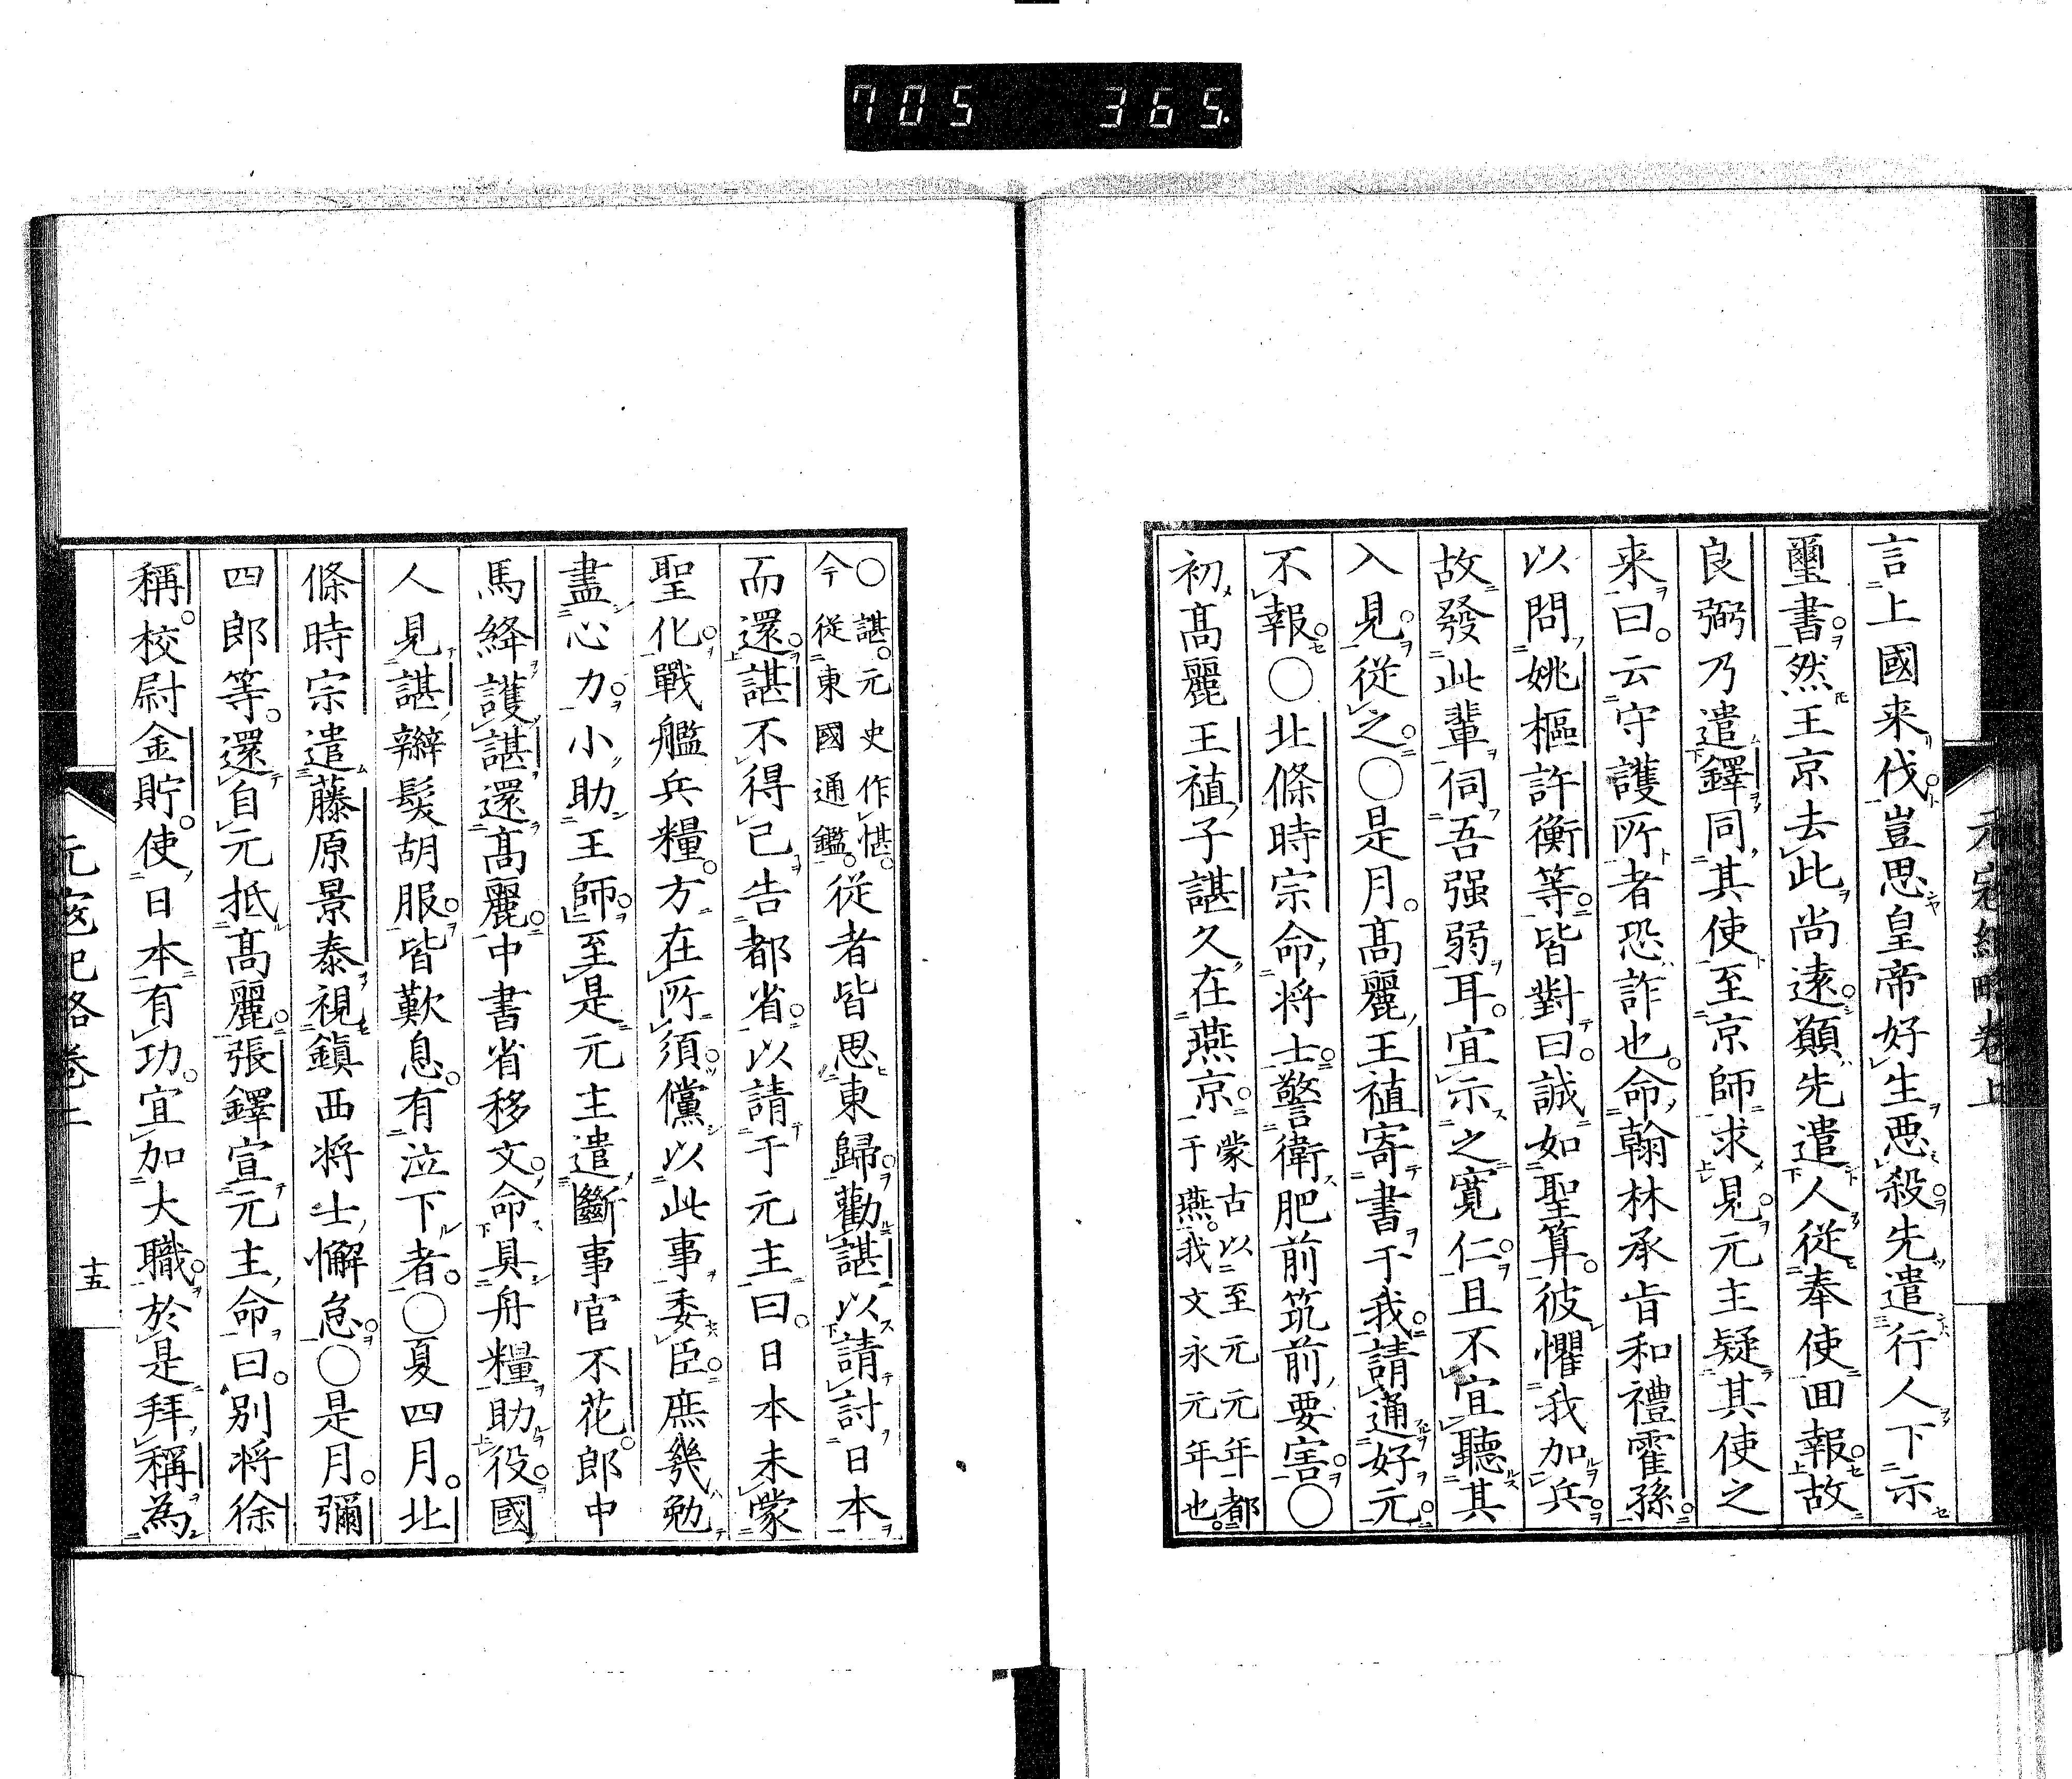 705 365
元寇紀略卷上
言上國来伐豈思皇帝好生惡殺先遣行人下示
璽書然王京去此尚遠願先遣人從奉使回報故
良弼乃遣鐸同其使至京師求見元主疑其使之
来曰云守護所者恐詐也命翰林承旨和禮霍孫
以問姚樞許衡等皆對曰誠如聖算彼懼我加兵
故發此輩伺吾强弱耳宜示之寬仁且不宜聽其
入見從之〇是月髙麗王禃寄書于我請通好元
不報〇北條時宗命將士警衛肥前筑前要害〇
初髙麗王禃子諶久在燕京蒙古以至元元年都
于燕我文永元年也
〇諶元史作愖
今從東國通鑑從者皆思東歸勸諶以請討日本
而還諶不得已告都省以請于元主曰日本未蒙
聖化戰艦兵糧方在所須儻以此事委臣庶幾勉
盡心力小助王師至是元主遣斷事官不花郎中
馬絳護諶還髙麗中書省移文命具舟糧助役國
人見諶辮髮胡服皆歎息有泣下者〇夏四月北
條時宗遣藤原景泰視鎭西將士懈怠〇是月彌
四郎等還自元抵髙麗張鐸宣元主命曰別將徐
稱校尉金貯使日本有功宜加大職於是拜稱為
元寇紀略卷上
十五